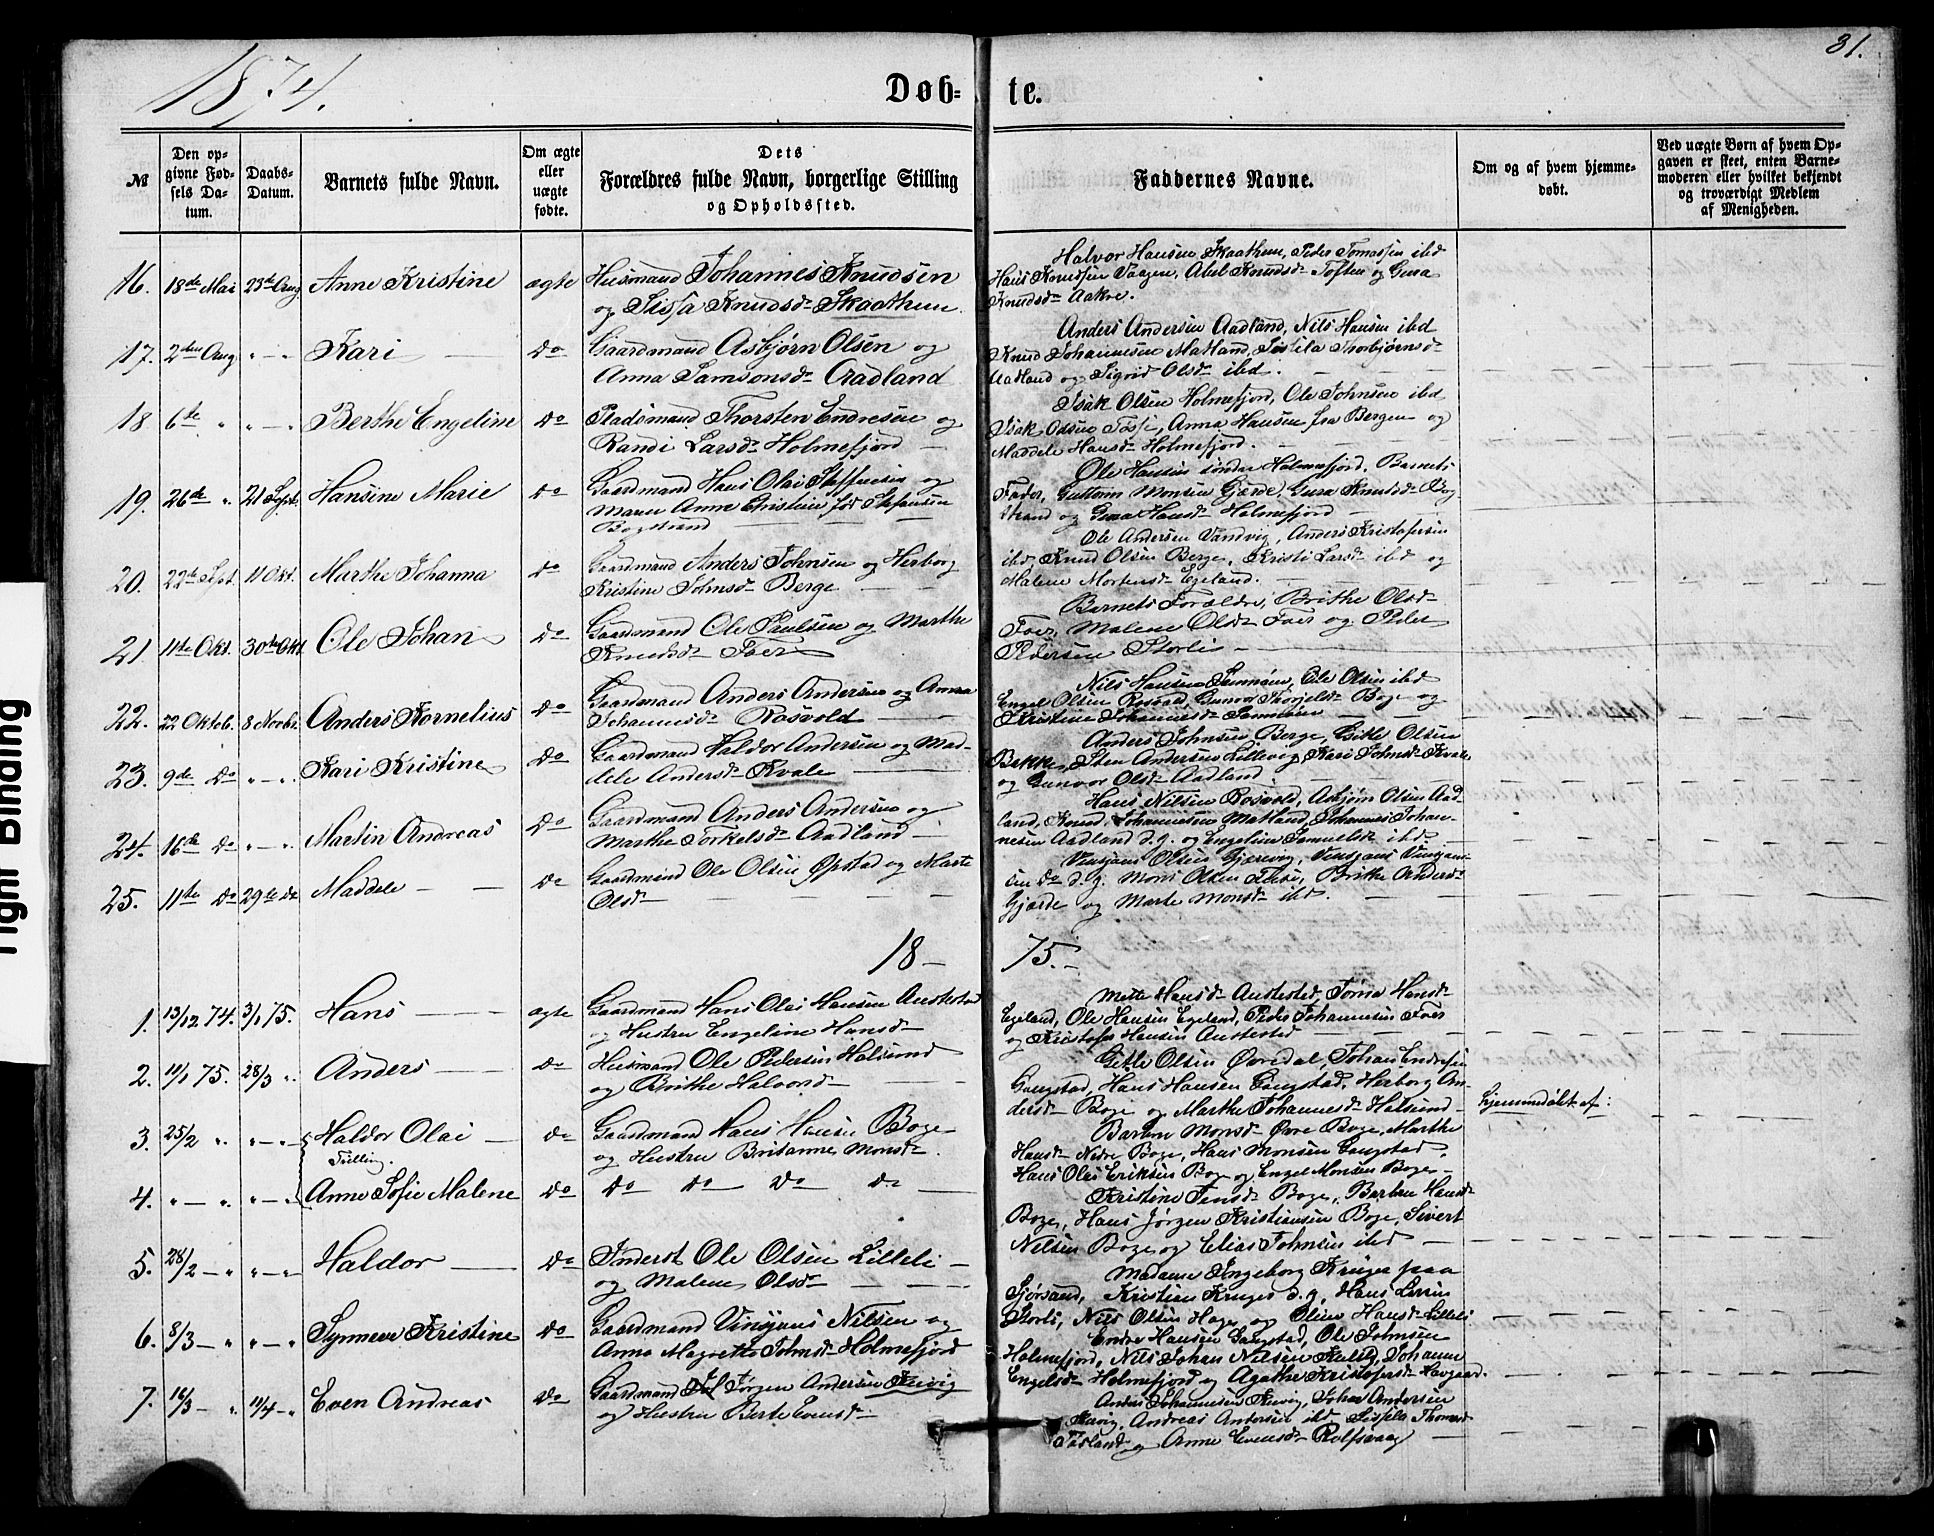 1874.
31.
Døb- te.
№
Den opgivne Fødsels Datum.
Daabs-Datum.
Barnets fulde Navn.
Om ægte eller uægte fødte.
Dets Forældres fulde Navn, borgerlige Stilling og Opholdssted.
Faddernes Navne.
Om og af hvem hjemmedøbt.
Ved uægte Børn af hvem Opgaven er skeet, enten Barnemoderen eller hvilket bekjendt og troværdigt Medlem af Menigheden.
16. 18de Mai 23de Aug Anne Kristine ægte Husmand Johannes Knudsen
og Sissa Knudsdr Skaathun
Halvor Hansen Skaathun, Peder Tomassen ibd
Hans Knudsen Vaagen, Abel Knudsdr Toften og Gura
Knudsdr Aakre.
17. 2den Aug " - " Kari Do Gaardmand Asbjørn Olsen og
Anna Samsonsdr Aadland
Anders Andersen Aadland, Nils Hansen ibd
Knud Johannesen Matland, Thorbjørnsdr
Aadland og Sigrid Olsdr ibd.
18 6te " " - " Berthe Engeline Do Pladsmand Thorsten Endresen og
Randi Larsdr Holmefjord
Isak Olsen Holmefjord, Ole Johnsen ibd
Isak Odsen, Anna Hansen fra Bergen og
Maddele Hansdr Holmefjord.
19. 26de " 21 Sept. Hansine Marie Do Gaardmand Hans Olai Steffensen og
Maren Anne Cristine fød Stefansen
Bogstrand
Ole Hansen søndre Holmefjord, Barnets
Fader, Guttorm Monsen Gjerde, Gura Knudsdr Bog
strand og Gura Hansdr Holmefjord
20. 22de Sept. 11 Okt. Marthe Johanna Do Gaardmand Anders Johnsen og Herborg
Kristine Johnsdr Berge
Ole Andersen Vandvig, Anders Kristofersen
ibd Knud Olsen Berge, Kristi Larsdr ibd og
Malene Mortensdr Egeland.
21. 11te Okt. 30te Okt Ole Johan Do Gaardmand Ole Paulsen og Marthe
Knudsdr Foer
Barnets Forældre, Brithe Olsdr
Foer, Malene Olsdr Foer og Peder
Pedersen Storli
22. 22 Oktob. 8 Novbr. Anders Kornelius Do Gaardmand Anders Andersen og Anna
Johannesdr Rosvold
Nils Hansen, Ole Olsen ibd
Engel Olsen Rosvold, Gunvor Boge og
Kristine Johannesdr
23. 9de Do " - " Kari Kristine Do Gaardmand Haldor Andersen og Mad-
dele Andersdr Kvale
Anders Johnsen Berge, Gitle Olsen
Bakke, Sten Andersen Lillevig, Kari Johnsdr Kvale
og Gunvor Olsdr Aadland
24. 16de Do " - " Martin Andreas Do Gaardmand Anders Andersen og
Marthe Torkelsdr Aadland
Hans Nilsen Rosvold, Asbjørn Olsen Aad-
land, Knud Johannesen Matland, Johannes Johan-
nesen Aadland d.y. og Engeline Samuelsdr ibd
25. 11te Do 29te Do Maddele Do Gaardmand Ole Olsen Opstad og Marte
Olsdr
Vinsjans Olsen Gjærvig, Vinsjans Vinsjan-
sen Do d.y. Mons Olsen, Brithe Andersdr
Gjærde og Marte Monsdr ibd.
18 - 75. -
1. 13/12 74. 3/1 75. Hans ægte Gaardmand Hans Olai Hansen Austestad
og Hustru Engeline Hansdr
Mette Hansdr Austestad, Hansdr
Egeland, Ole Hansen Egeland, Peder Johannesen Foer
og Kristofer Hansen Austestad
2. 10/1 75. 28/3 " Anders Do Husmand Ole Pedersen Halsund
og Brithe Halvorsdr
Gitle Olsen Øvredal, Johan Endresen
Gangstad, Hans Hansen Gangstad, Herborg An-
dersdr Boge og Marthe Johannesdr Halsund
Hjemmedøbt af:
3. 25/2 " " - " Haldor Olai Do Gaardmand Hans Hansen Boge
Tvilling.
og Hustru Britanne Monsdr.
Barbru Monsdr Øvre Boge, Marthe
Hansdr Nedre Boge, Hans Monsen Gangstad,
Hans Olai Eriksen Boge og Engel Monsen Boge
4. " - " " - " Anne Sofie Malene Do Do Do Do Do
Kristine Jensdr Boge, Barbru Hansdr
Boge, Hans Jørgen Kristiansen Boge, Sivert
Nilsen Boge og Elias Johnsen ibd
5. 28/2 - " " - " Haldor Do Inderst Ole Olsen Lilleli
og Malene Olsdr
Madame Ingeborg Krüger paa
Sjøsand, Kristian Krüger d.y., Hans Larsen
Storli, Nils Olsen Hage og Oline Hansdr Lilleli
6. 8/3 - " " - " Synneve Kristine Do Gaardmand Vinsjans Nilsen og
Anna Magrethe Johnsdr Holmefjord
Endre Hansen Gangstad, Ole Johnsen
Holmefjord, Nils Johan Nilsen, Johanne
Engelsdr Holmefjord og Agathe Kristofersdr Havgaard.
7. 16/3 - " 11/4 - " Even Andreas Do Gaardmand Jørgen Andersen Revig
og Hustru Berte Evensdr
Anders Johannesen Revig, Johan Andersen
Revig, Andreas Andersen ibd Sissela Thomasdr
Aadland og Anne Evensdr Rolfsvaag
Tight Binding